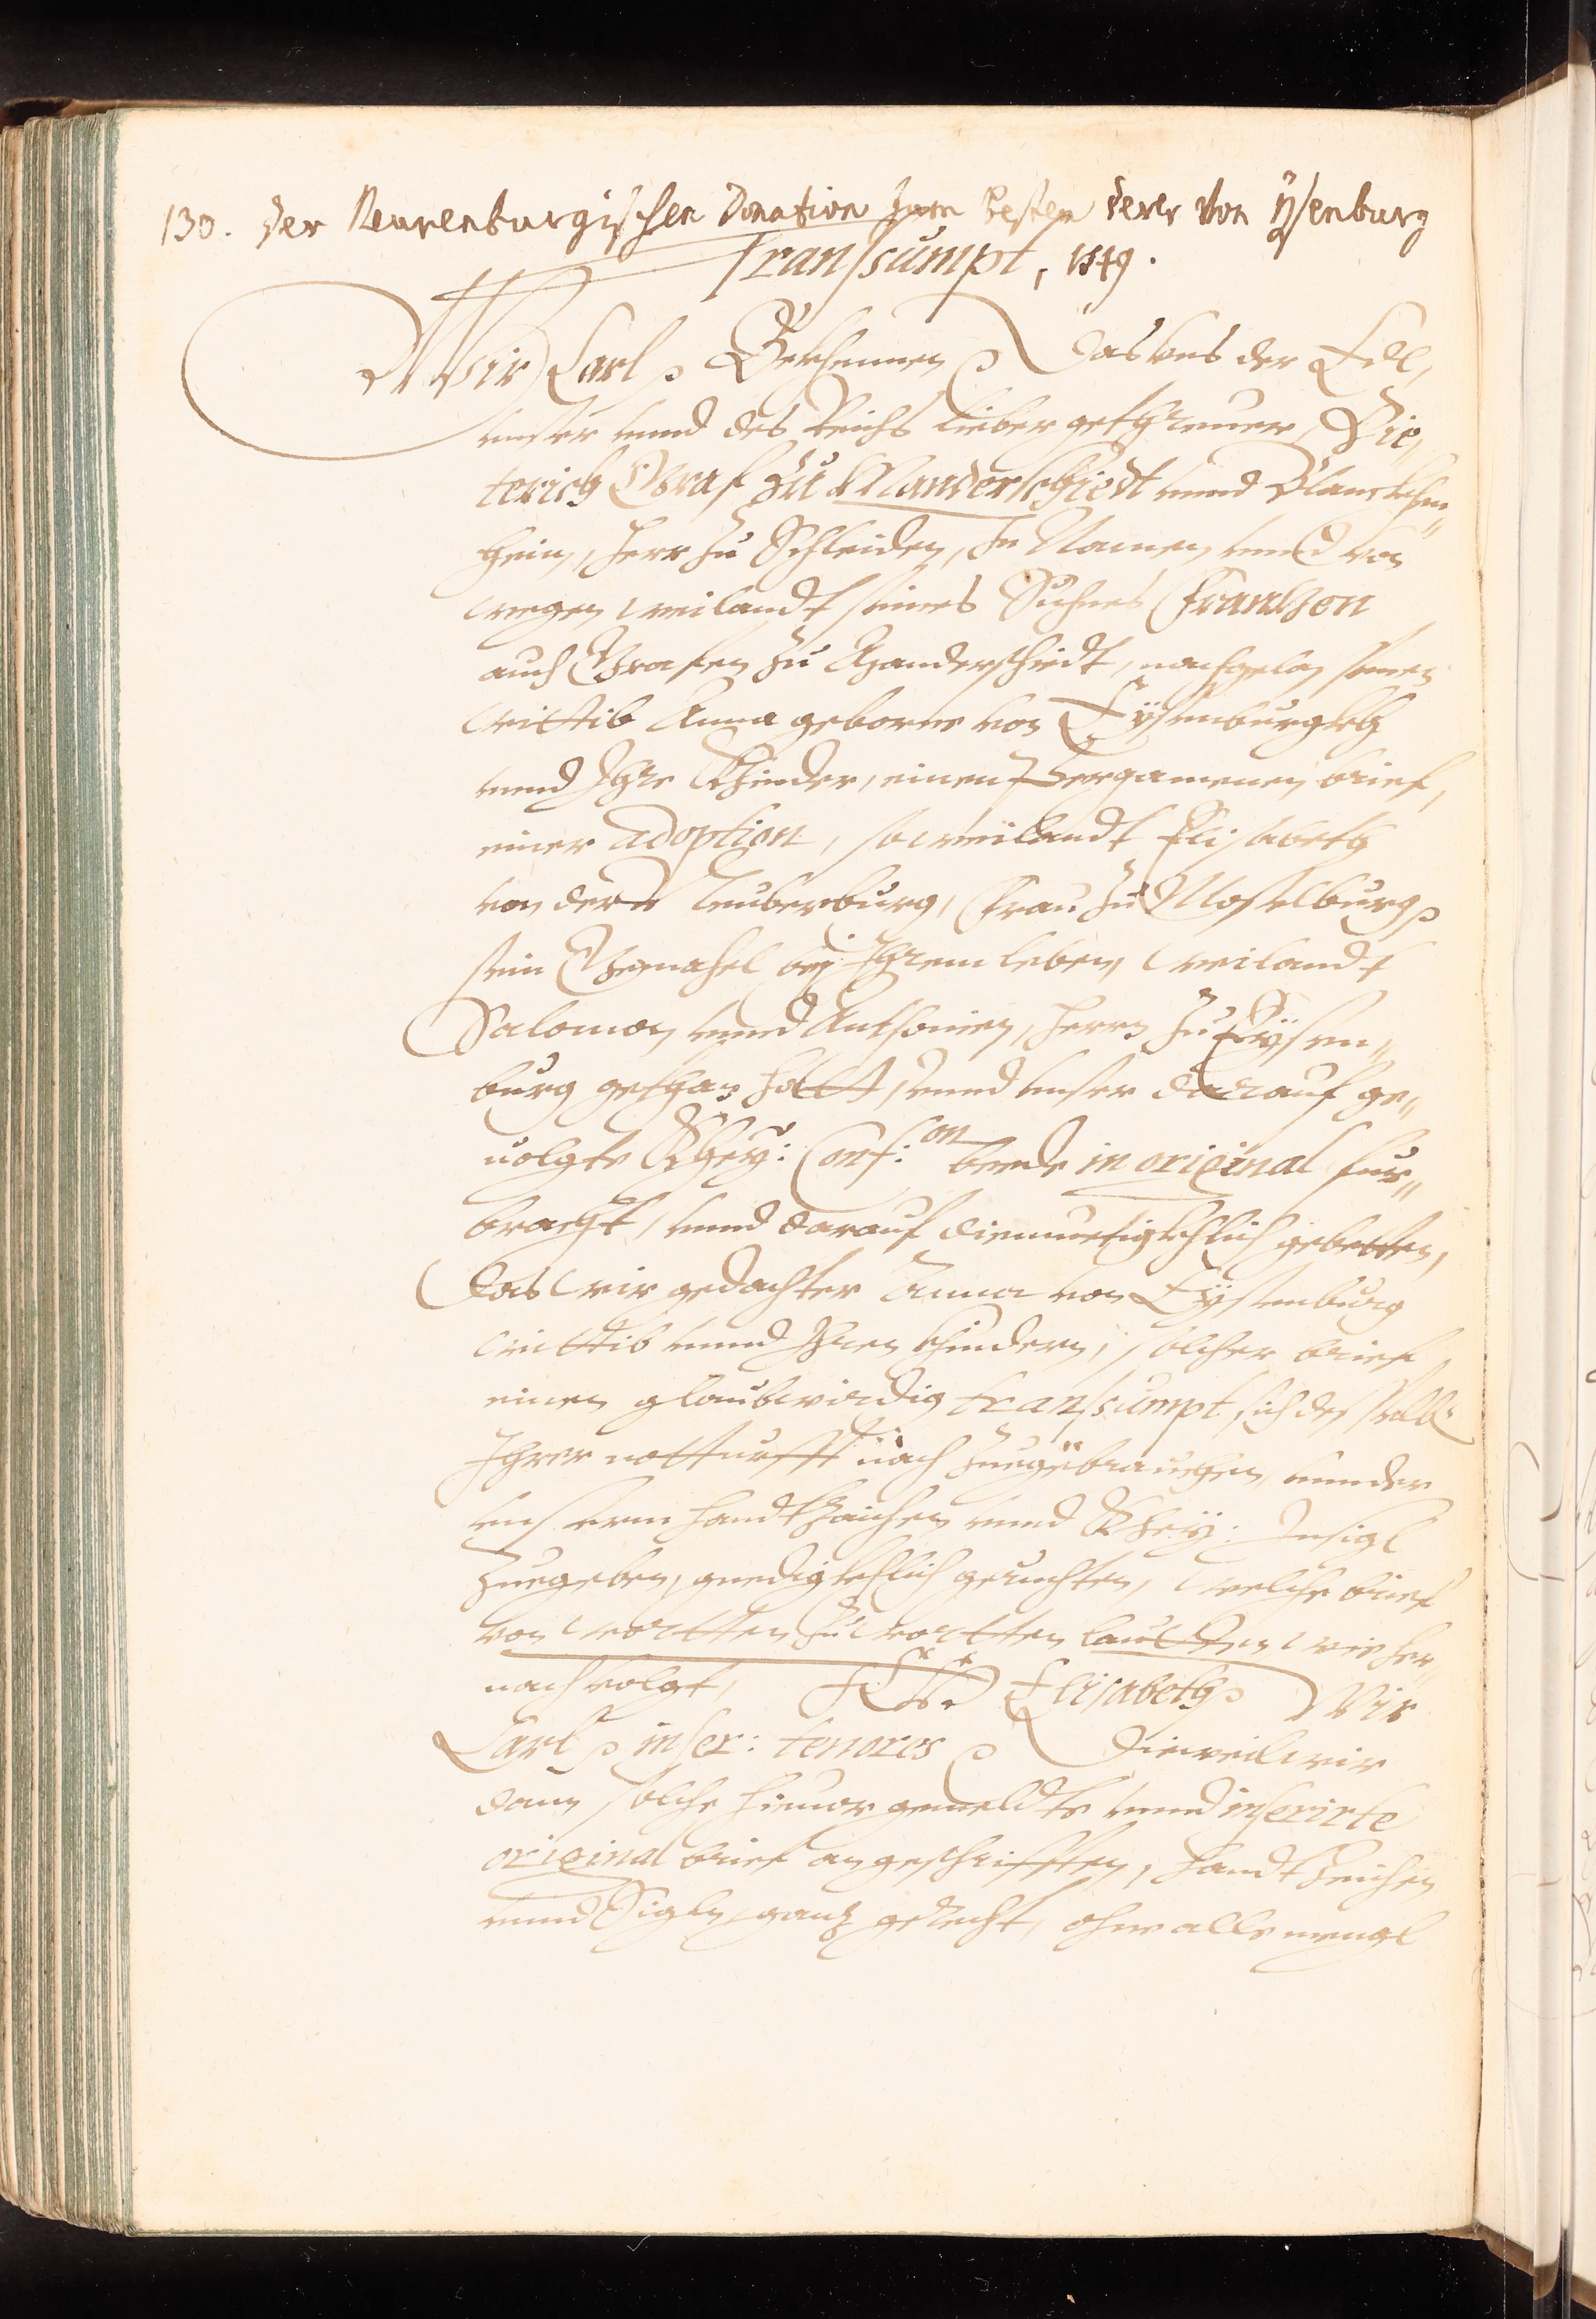 130. Der Neurenburgischen Donation zum besten derer von Ysenburg
Transsumpt, 1549.
Wir Carl p Bekhennen p Das vns der Edl,
vnser vnnd des Reichs lieber gethreuer, Die„
terich Graf zu Manderschiedt vnnd Blanckhen„
heim, Herr zu Schleiden, In Namen vnnd von
wegen weilandt seines Suhnes Frantzen
auch Grafen zu Manderschiedt, nachgelaßener
wittib Anna geborne von Eysenburgkh
vnnd Ihre Khinder, einen Pergamenen brief,
einer adoption, so weilandt Elisabeth
von der Neuberburg, Frau zu Moselburg p
sein Gemahel bej Ihrem leben, weilandt
Salomon vnnd Anthonien, Herrn zu Eysen„
burg gethan hatt, vnnd vnser darauf ge„
uolgte Khey: Conf:on beede in original für„
bracht, vnnd darauf diemuetigkhlich gebetten,
Das wir gedachter Anna von Eysenburg
wittib vnnd Ihren Khindern, solcher brief
einen glaubwirdig transsumpt, sich deßselb
Ihrer notturfft nach zuegebrauchen, vnnder
vnserm handtzaichen vnnd Khey: Insigl
zuegeben, gnedigkhlich geruchten, welche brief
von wortten zu wortten lautten wie her„
nach volgt, Elisabeth p Wir
Carl p inser: tenores p Dieweil wir
dann solche hieuor gemeldte vnnd inserirte
original brief an geschrifften, handtzeichen
vnnd Sigln gantz gerecht, ohne alle mengl